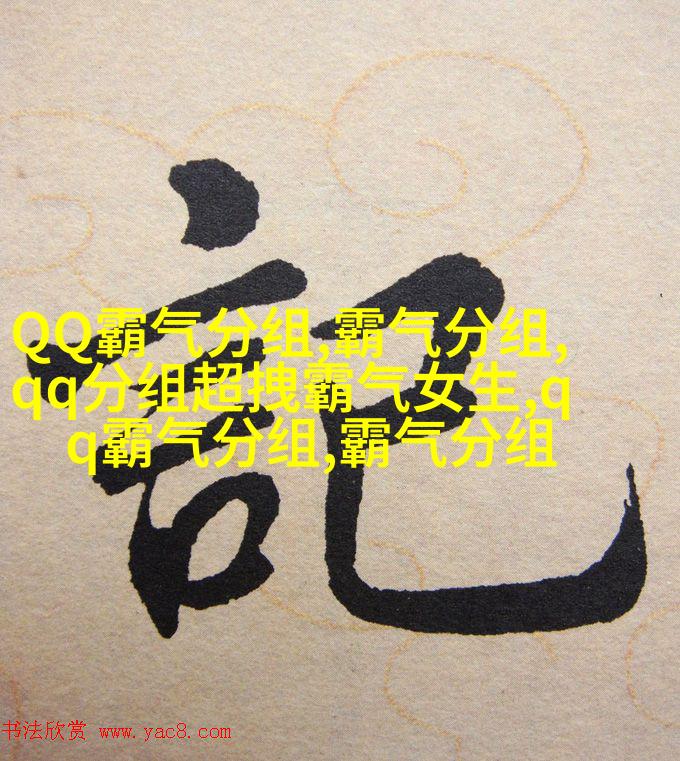 記
QQ霸气分组,霸气分组,
qq分组超拽霸气女生,q
q霸气分组,霸气分组
书法欣赏 www.yac8.com